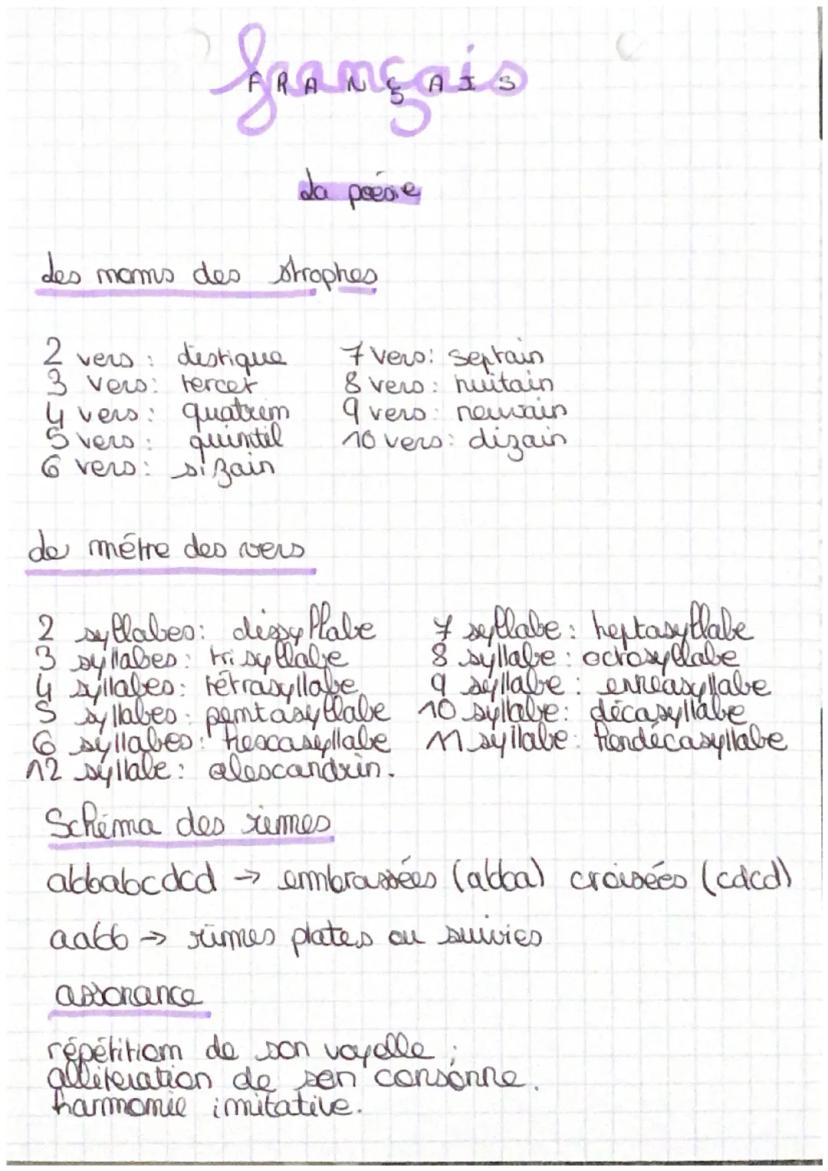 français
FRANÇAIS
La poésie
Les noms des strophes
2 vers : distique
3 vers : tercet
4 vers : quatrem
5 vers : quintil
6 vers : sizain
7 vers : septain
8 vers : huitain
9 vers : neuvain
10 vers : dizain
Le métre des vers
2 syllabes : dissyllabe
3 syllabes : trisyllabe
4 syllabes : tétrasyllabe
5 syllabes : pentasyllabe
6 syllabes : hexasyllabe
12 syllabe : alexandrin.
7 syllabe : heptasyllabe
8 syllabe : octosyllabe
9 syllabe : enneasyllabe
10 syllabe : décasyllabe
11 syllabe : hendécasyllabe
Schéma des rimes
abbabcdcd → embrassées (abba) croisées (cdcd)
aabb → rimes plates ou suivies
assonance
répétition de son voyelle ;
allitération de son consonne.
harmonie imitative.